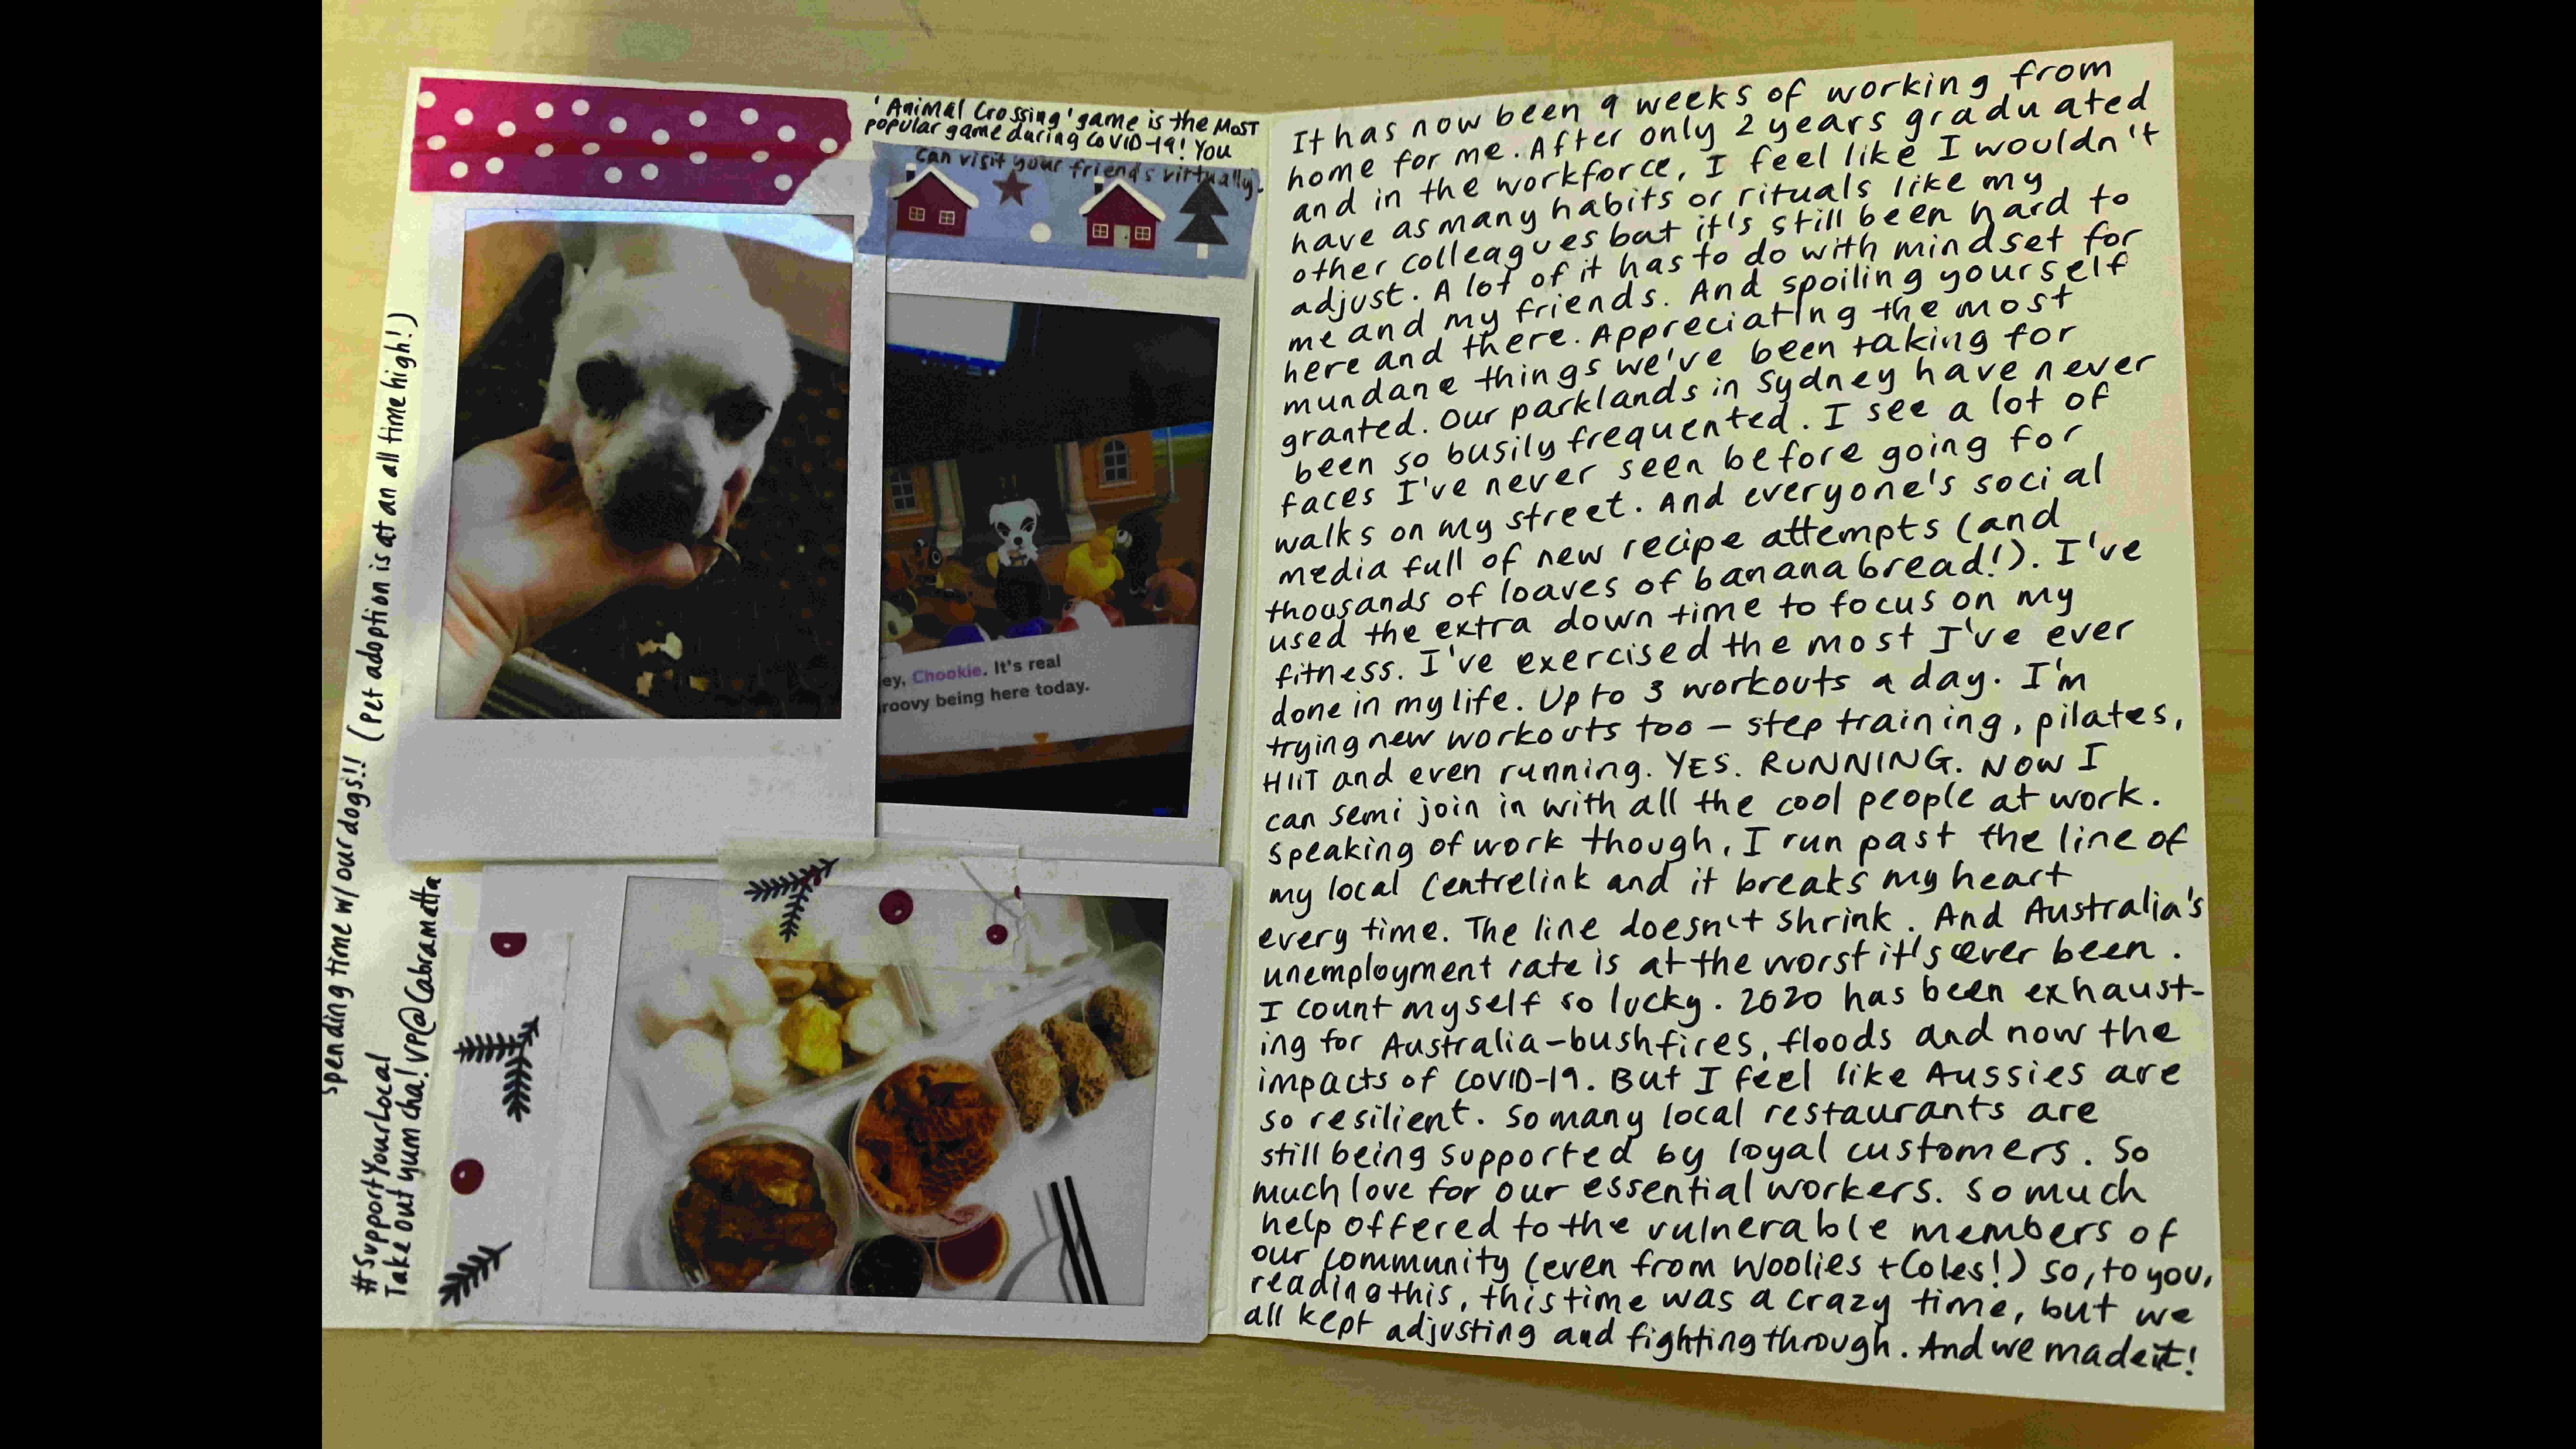 'Animal Crossing' game is the most
popular game during COVID-19! You
can visit your friends virtually.
spending time w/ our dogs!! (Pet adoption is at an all time high!)
ey, Chookie. It's real
roovy being here today.
#SupportYourLocal
Take out yum cha! VP@Cabramatta
It has now been 9 weeks of working from
home for me. After only 2 years graduated
and in the workforce, I feel like I wouldn't
have as many habits or rituals like my
other colleagues but it's still been hard to
adjust. A lot of it has to do with mindset for
me and my friends. And spoiling yourself
here and there. Appreciating the most
mundane things we've been taking for
granted. Our parklands in Sydney have never
been so busily frequented. I see a lot of
faces I've never seen before going for
walks on my street. And everyone's social
media full of new recipe attempts (and
thousands of loaves of banana bread!). I've
used the extra down time to focus on my
fitness. I've exercised the most I've ever
done in my life. Up to 3 workouts a day. I'm
trying new workouts too - step training, pilates,
HIIT and even running. YES. RUNNING. NOW I
can semi join in with all the cool people at work.
speaking of work though, I run past the line of
my local Centrelink and it breaks my heart
every time. The line doesn't shrink. And Australia's
unemployment rate is at the worst it's ever been.
I count myself so lucky. 2020 has been exhaust-
ing for Australia - bushfires, floods and now the
impacts of COVID-19. But I feel like Aussies are
so resilient. So many local restaurants are
still being supported by loyal customers. So
much love for our essential workers. So much
help offered to the vulnerable members of
our community (even from Woolies + Coles!) so, to you,
reading this, this time was a crazy time, but we
all kept adjusting and fighting through. And we made it!